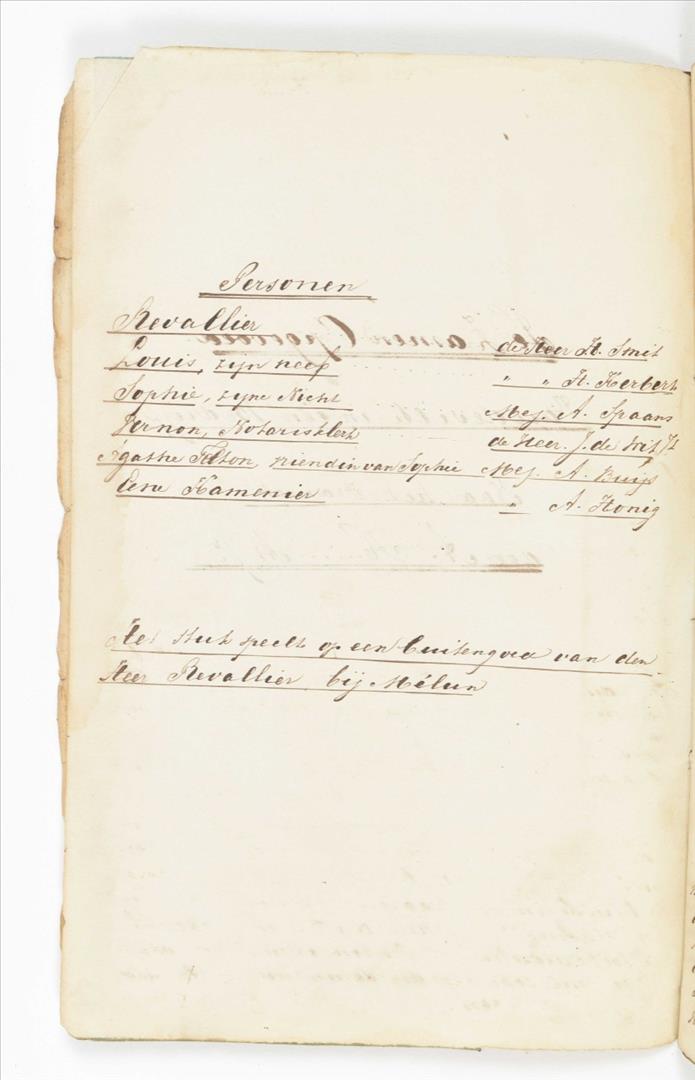 Personen
Revallier de Heer H. Smit
Louis, zijn neef „ „ H. Herbert
Sophie, zijne Nicht Mej. A. Spaans
Vernon, Notarisklerk de Heer. J. de Wit Jz
Agathe Tilton, vriendin van Sophie Mej. A. Buijs
Eene Kamenier „ A. Honig
Het stuk speelt op een buitengoed van den
Heer Revallier bij Mélun